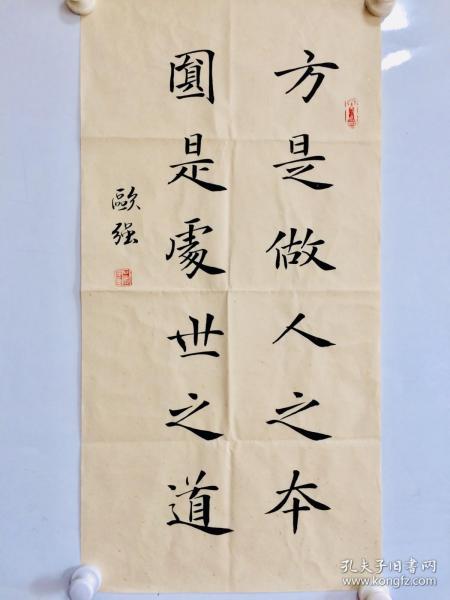 方是做人之本
圓是處世之道
歐强
孔夫子旧书网
www.kongfz.com